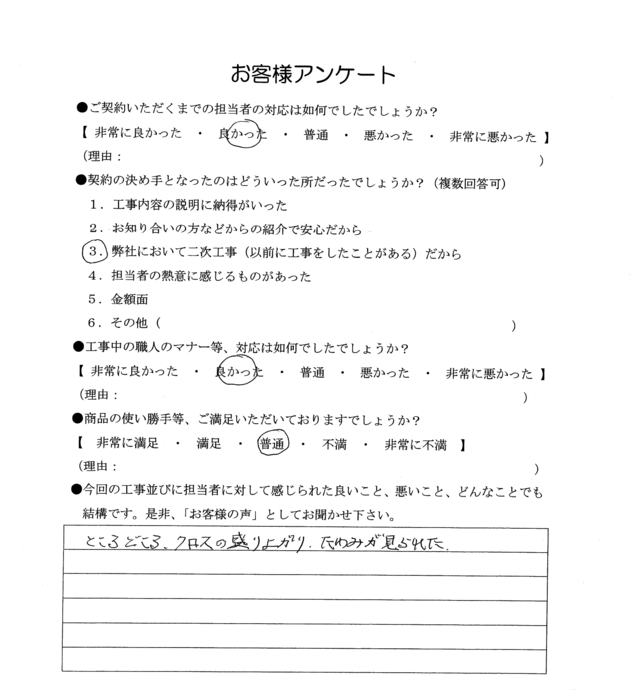 お客様アンケート
●ご契約いただくまでの担当者の対応は如何でしたでしょうか？
【 非常に良かった ・ 良かった ・ 普通 ・ 悪かった ・ 非常に悪かった 】
（理由： ）
●契約の決め手となったのはどういった所だったでしょうか？（複数回答可）
１．工事内容の説明に納得がいった
２．お知り合いの方などからの紹介で安心だから
３．弊社において二次工事（以前に工事をしたことがある）だから
４．担当者の熱意に感じるものがあった
５．金額面
６．その他（ ）
●工事中の職人のマナー等、対応は如何でしたでしょうか？
【 非常に良かった ・ 良かった ・ 普通 ・ 悪かった ・ 非常に悪かった 】
（理由： ）
●商品の使い勝手等、ご満足いただいておりますでしょうか？
【 非常に満足 ・ 満足 ・ 普通 ・ 不満 ・ 非常に不満 】
（理由： ）
●今回の工事並びに担当者に対して感じられた良いこと、悪いこと、どんなことでも
結構です。是非、「お客様の声」としてお聞かせ下さい。
ところどころ、クロスの盛り上がり、たわみが見られた.